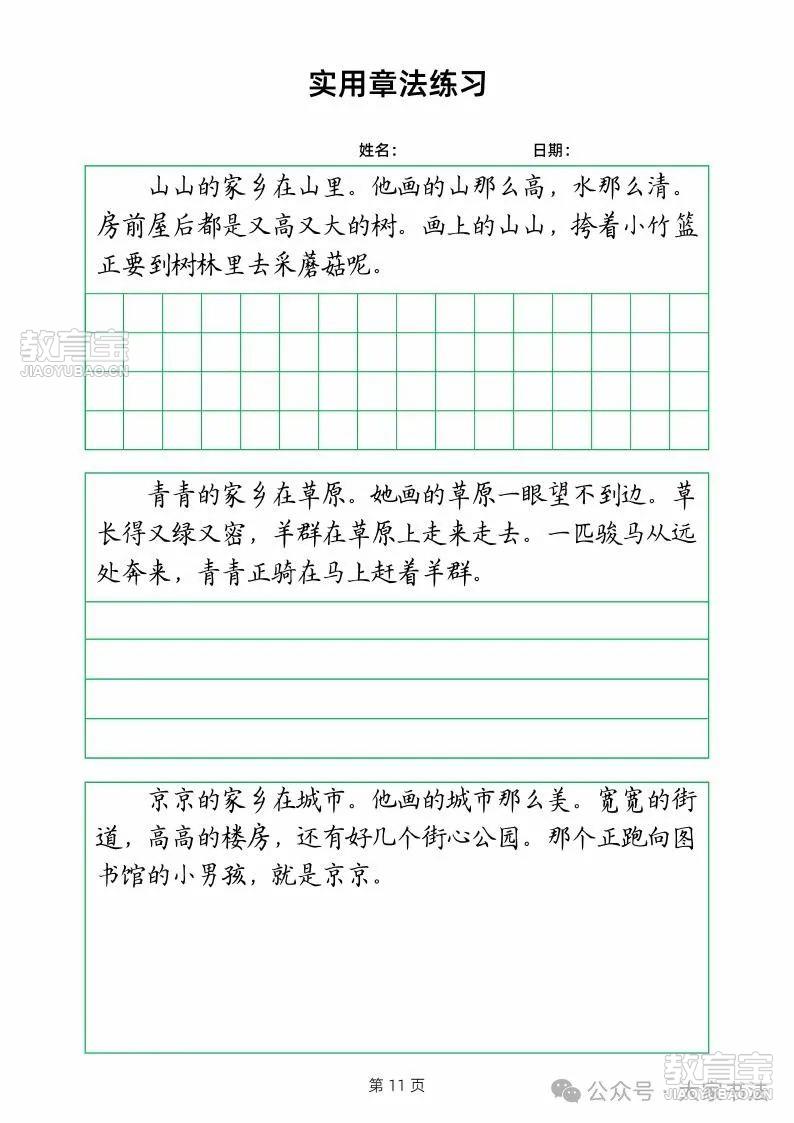 实用章法练习
姓名： 日期：
山山的家乡在山里。他画的山那么高，水那么清。
房前屋后都是又高又大的树。画上的山山，挎着小竹篮
正要到树林里去采蘑菇呢。
教育宝
JIAOYUBAO.CN
青青的家乡在草原。她画的草原一眼望不到边。草
长得又绿又密，羊群在草原上走来走去。一匹骏马从远
处奔来，青青正骑在马上赶着羊群。
京京的家乡在城市。他画的城市那么美。宽宽的街
道，高高的楼房，还有好几个街心公园。那个正跑向图
书馆的小男孩，就是京京。
第 11 页
教育宝
JIAOYUBAO.CN
公众号 · 大家书法